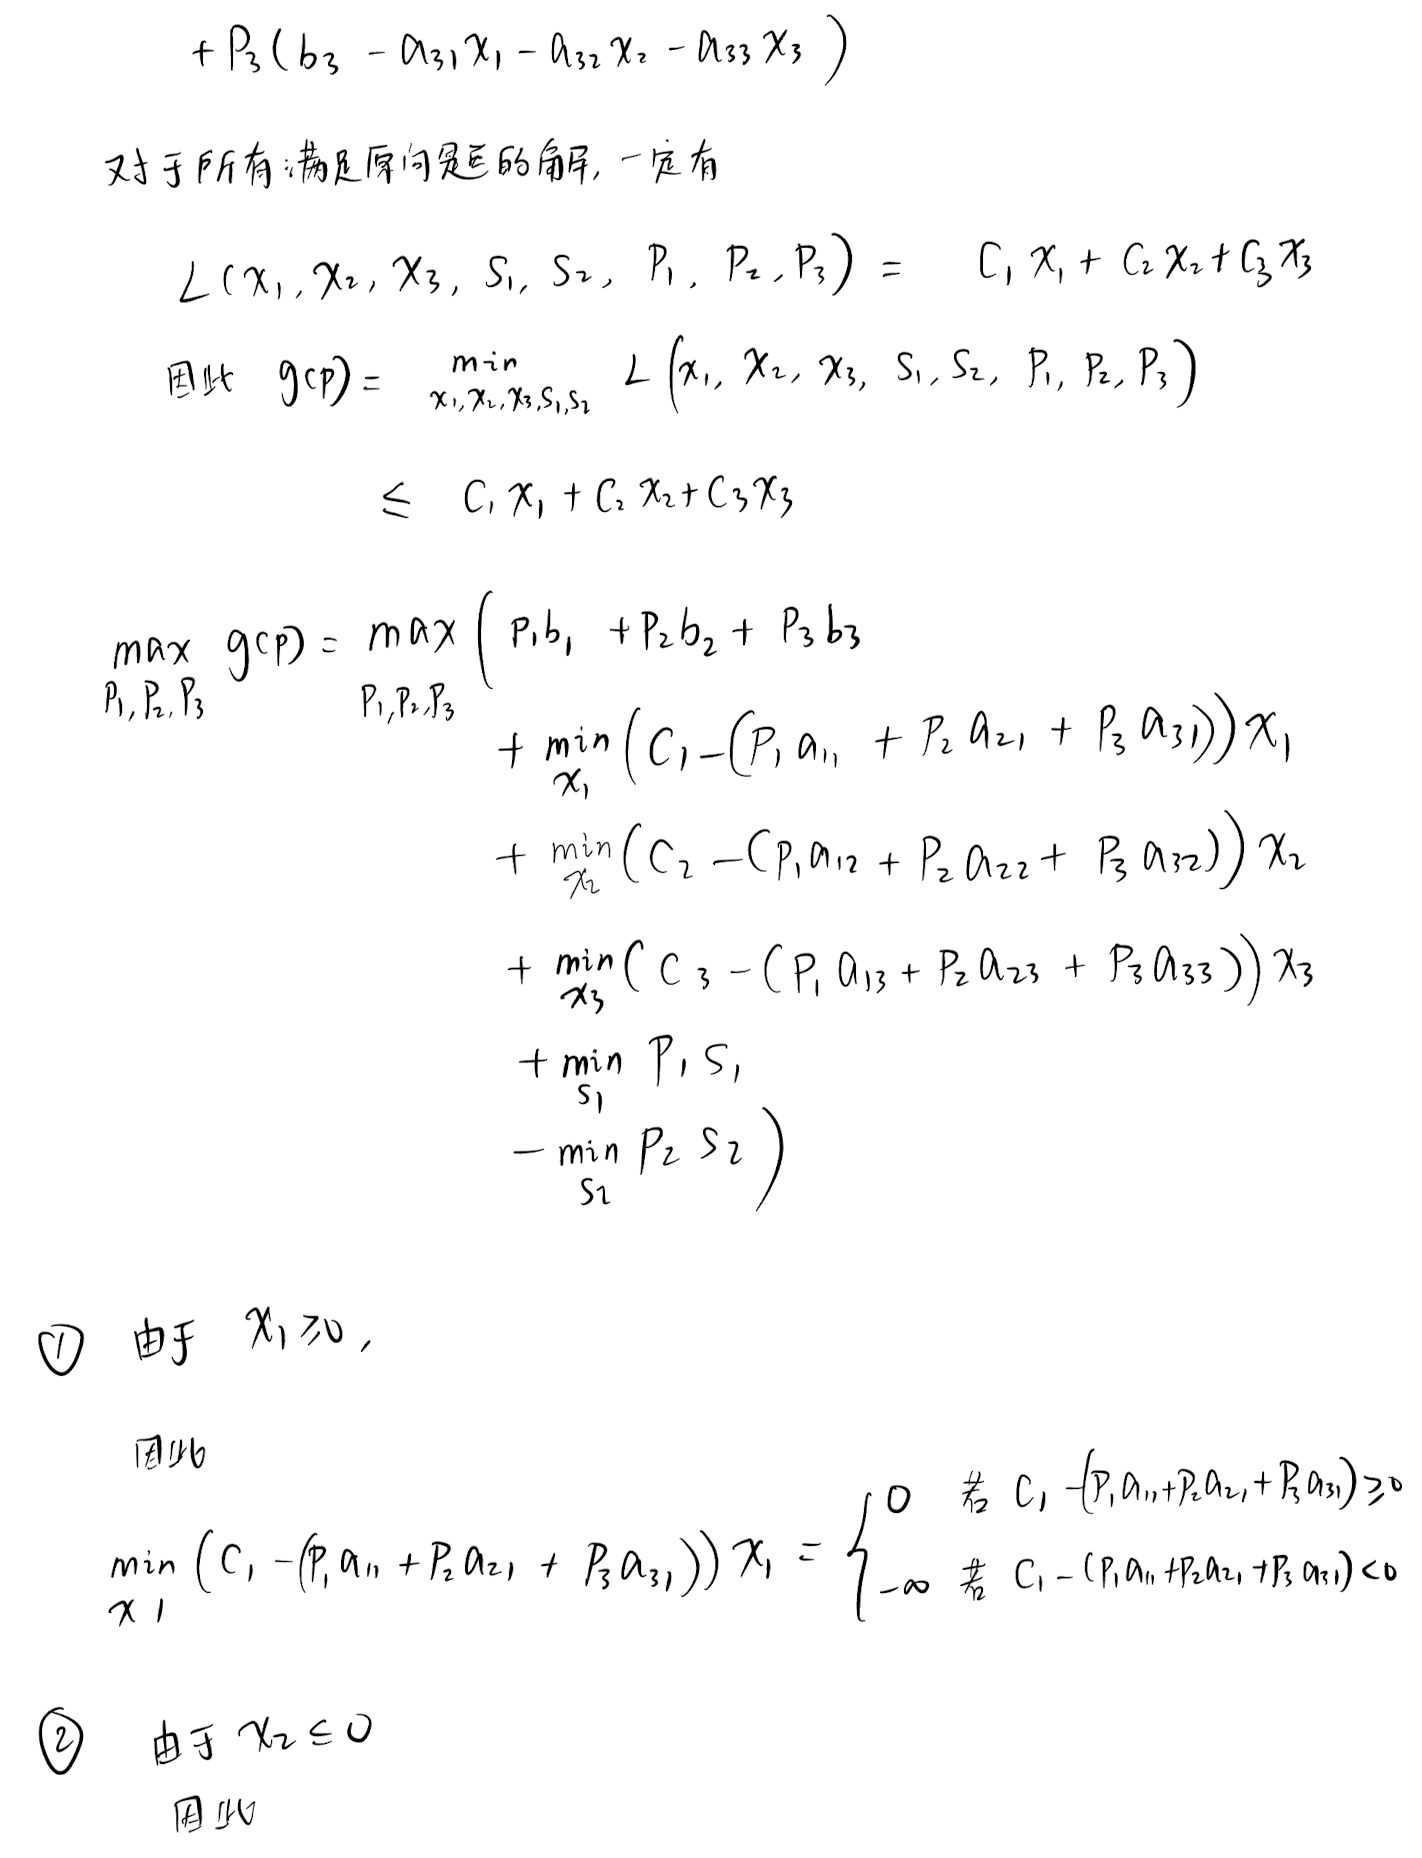 + P₃(b₃ - a₃₁x₁ - a₃₂x₂ - a₃₃x₃)
对于所有满足原问题的解, 一定有
L(x₁, x₂, x₃, s₁, s₂, P₁, P₂, P₃) = C₁x₁ + C₂x₂ + C₃x₃
因此 g(p) = min L(x₁, x₂, x₃, s₁, s₂, P₁, P₂, P₃)
x₁,x₂,x₃,s₁,s₂
≤ C₁x₁ + C₂x₂ + C₃x₃
max g(p) = max ( P₁b₁ + P₂b₂ + P₃b₃
P₁,P₂,P₃ P₁,P₂,P₃
+ min (C₁-(P₁a₁₁ + P₂a₂₁ + P₃a₃₁))x₁
x₁
+ min (C₂-(P₁a₁₂ + P₂a₂₂ + P₃a₃₂))x₂
x₂
+ min (C₃-(P₁a₁₃ + P₂a₂₃ + P₃a₃₃))x₃
x₃
+ min P₁s₁
s₁
- min P₂s₂ )
s₂
① 由于 x₁≥0,
因此
0 若 C₁-(P₁a₁₁+P₂a₂₁+P₃a₃₁)≥0
min (C₁-(P₁a₁₁ + P₂a₂₁ + P₃a₃₁))x₁ = {
x₁
-∞ 若 C₁-(P₁a₁₁+P₂a₂₁+P₃a₃₁)<0
② 由于 x₂≤0
因此